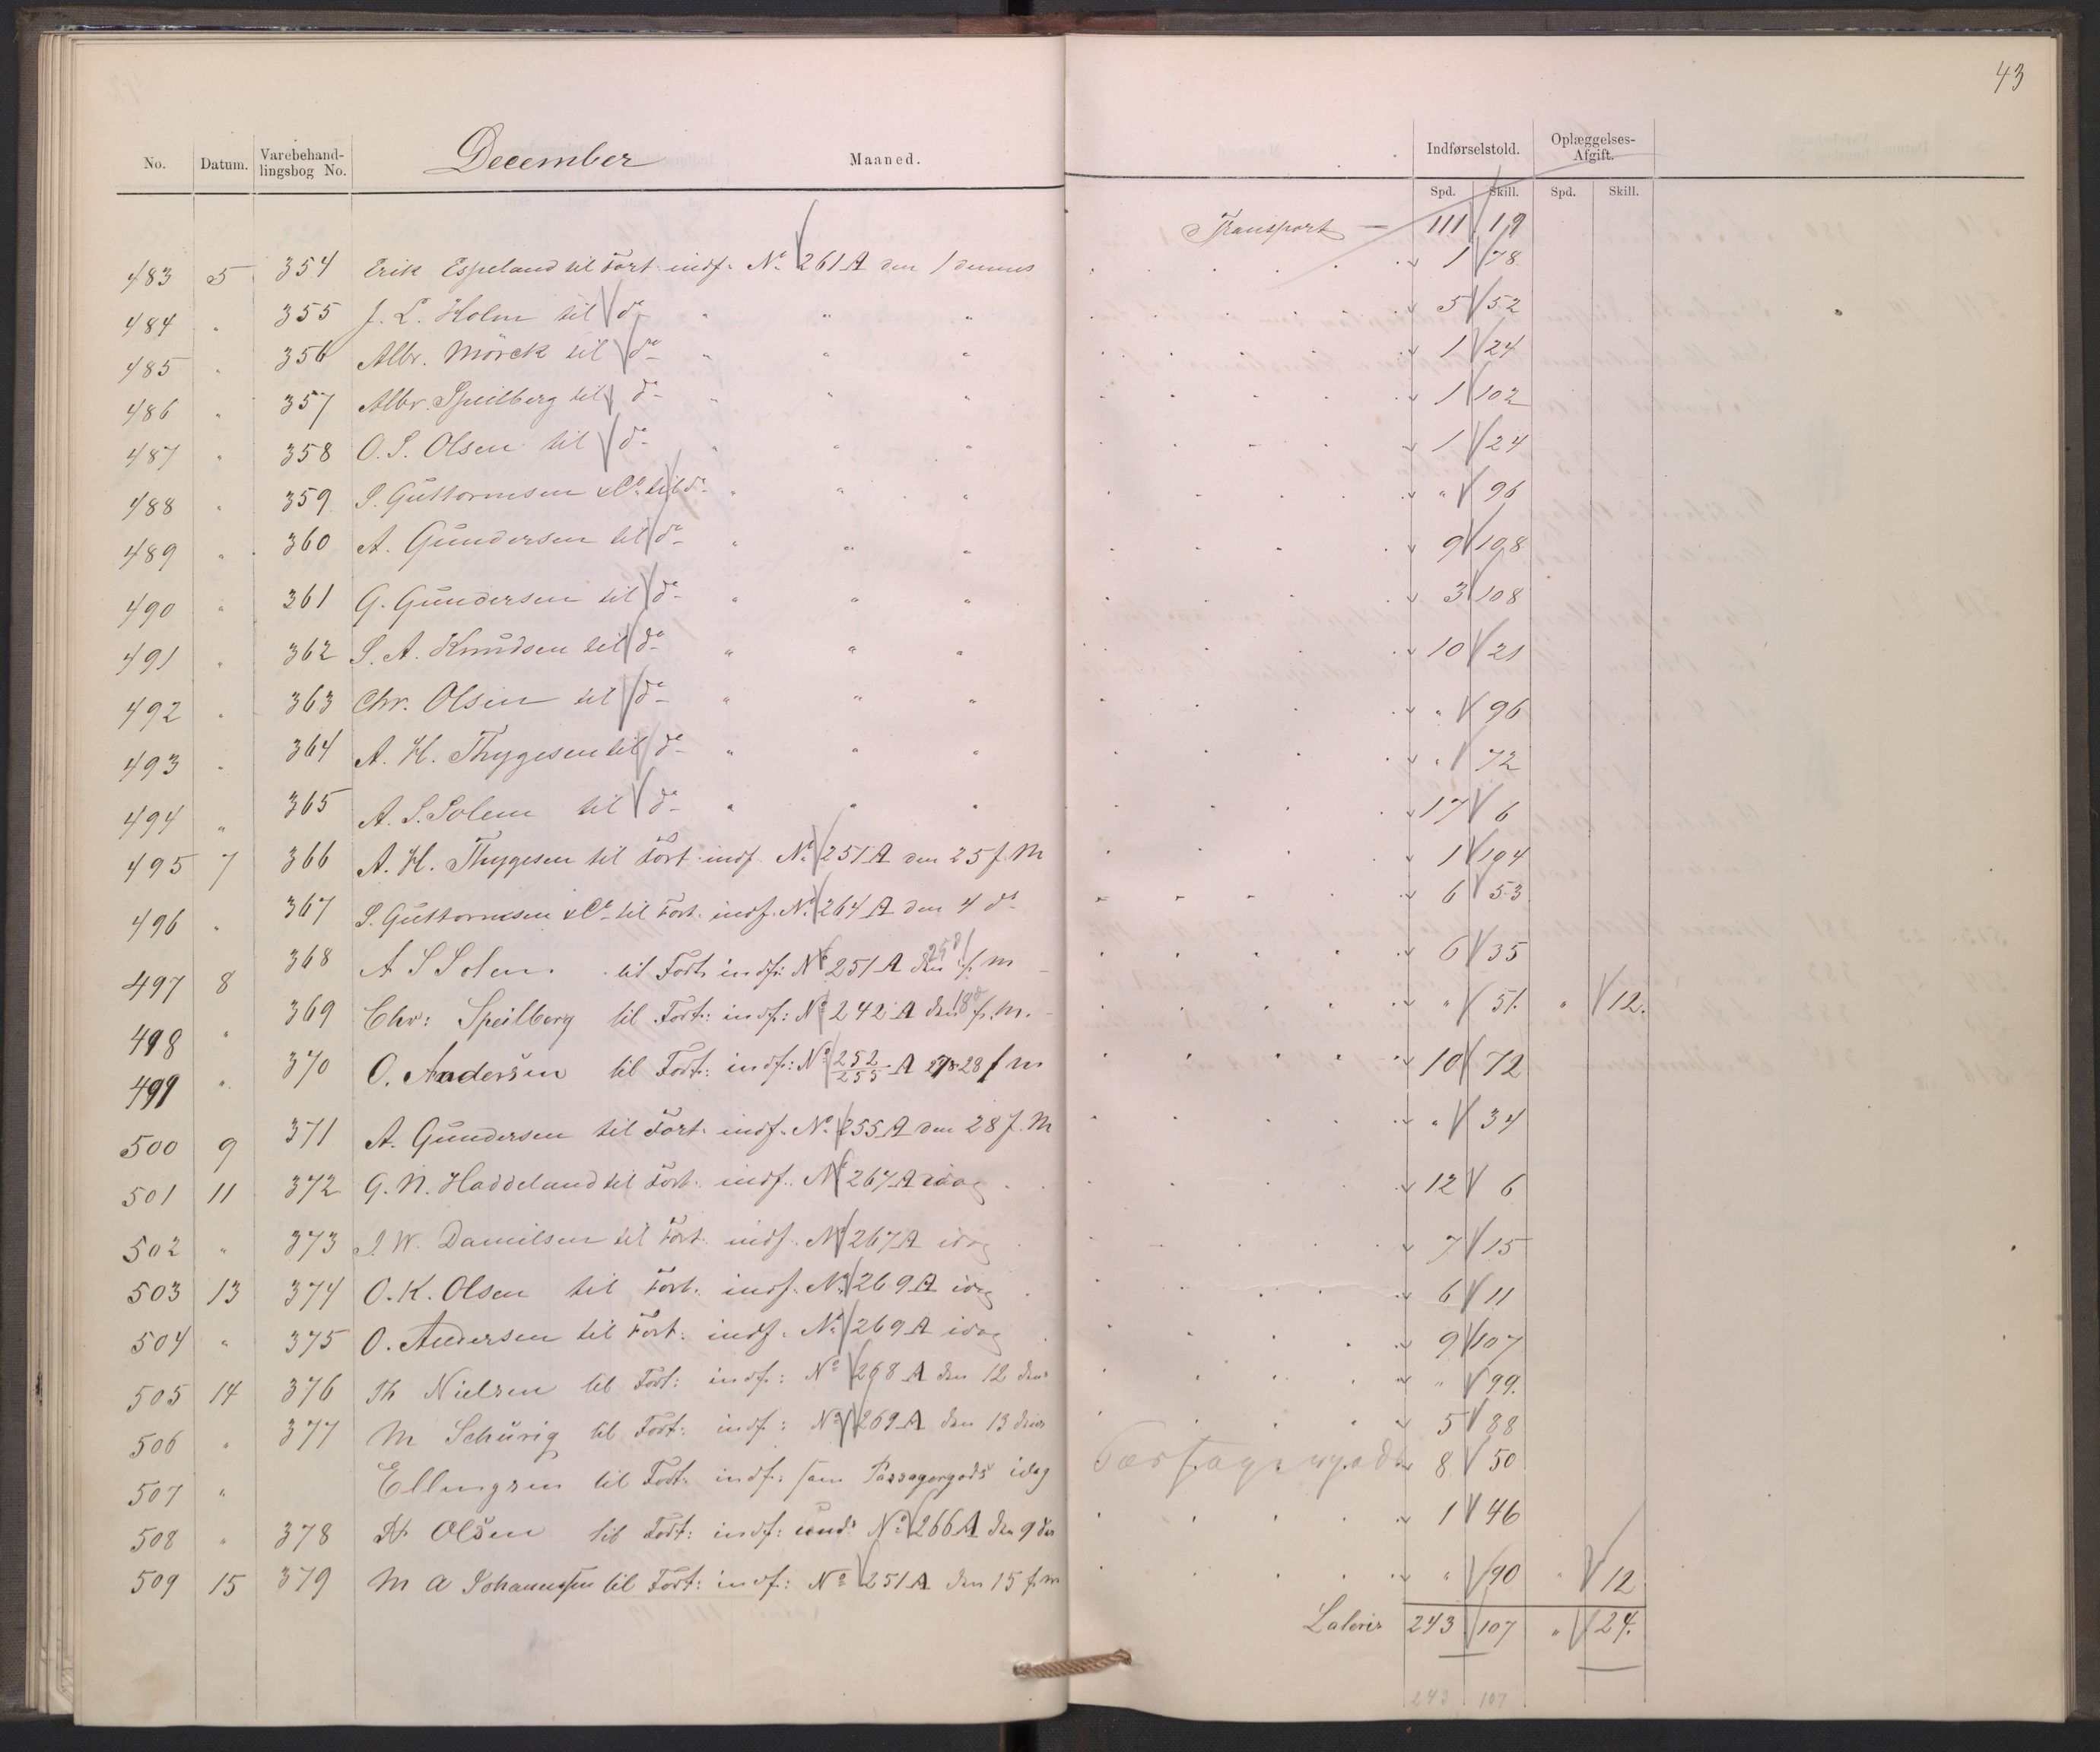 43
No. Datum. Varebehandlingsbog No. December Maaned. Indførselstold. Oplæggelses-Afgift.
Spd. Skill. Spd. Skill.
Transport — 111 19
483 5 354 Erik Espeland til Fort. indf. No. 261 A den 1 dennes 1 78
484 " 355 J. L. Holm til do " " " 5 52
485 " 356 Albr. Mörck til do " " " 1 24
486 " 357 Albr. Speilberg til do " " " 1 102
487 " 358 O. S. Olsen til do " " " 1 24
488 " 359 S. Guttormsen & Co. til do " " " " 96
489 " 360 A. Gundersen til do " " " 9 108
490 " 361 G. Gundersen til do " " " 3 108
491 " 362 S. A. Knudsen til do " " " 10 21
492 " 363 Chr. Olsen til do " " " " 96
493 " 364 A. H. Thygesen til do " " " " 72
494 " 365 A. S. Solem til do " " " 17 6
495 7 366 A. H. Thygesen til Fort. indf. No 251 A den 25 f. M 1 104
496 " 367 S. Guttormsen & Co til Fort. indf. No. 264 A den 4 ds 6 53
497 8 368 A S Solem. til Fort. indf: No 251 A den 25 f. m 6 35
498 " 369 Chr: Speilberg til Fort: indf: No 242 A den 18 f. m. " 51. " 12.
499 " 370 O. Andersen til Fort: indf: No 252/255 A 28 f m 10 72
500 9 371 A. Gundersen til Fort. indf. No. 255 A den 28 f. M " 34
501 11 372 G. N. Haddeland til Fort. indf. No 267 A idag 12 6
502 " 373 J W. Danielsen til Fort. indf. No 267 A idag 7 15
503 13 374 O. K. Olsen til Fort. indf. No 269 A idag 6 11
504 " 375 O. Andersen til Fort: indf. No 269 A idag 9 107
505 14 376 Th Nielsen til Fort: indf: No 268 A den 12 dens " 99.
506 " 377 M Schürig til Fort: indf: No 269 A den 13 dens 5 88
507 " Ellingsen til Fort: indf: som Passagergods idag 8 50
508 " 378 H Olsen til Fort: indf: No 266 A den 9 ds 1 46
509 15 379 M A Johannessen til Fort: indf: No 251 A den 15 f. m " 90 " 12
Lateris 243 107 " 24.
243 107